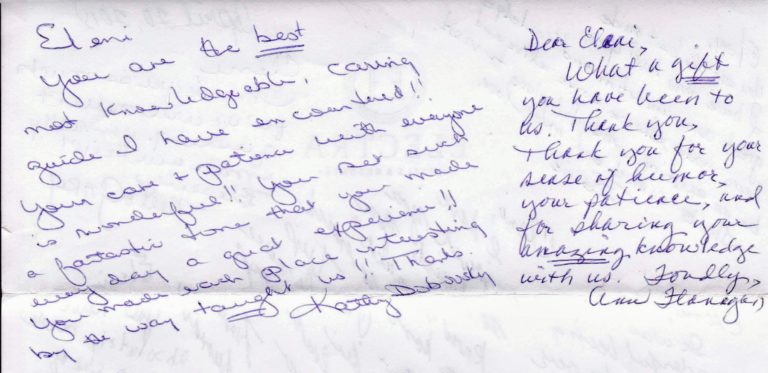 Eleni
You are the best
most knowledgeable, caring
guide I have encountered!!
Your care + patience with everyone
is wonderful!! You set such
a fatastic tone that you made
every day a great experience!!
You made each place interesting
by the way taught us!! Thanks
Kathy
Dear Eleni,
What a gift
you have been to
us. Thank you,
Thank you for your
sense of humor,
your patience, and
for sharing your
amazing knowledge
with us. Fondly,
Ann Flanagan